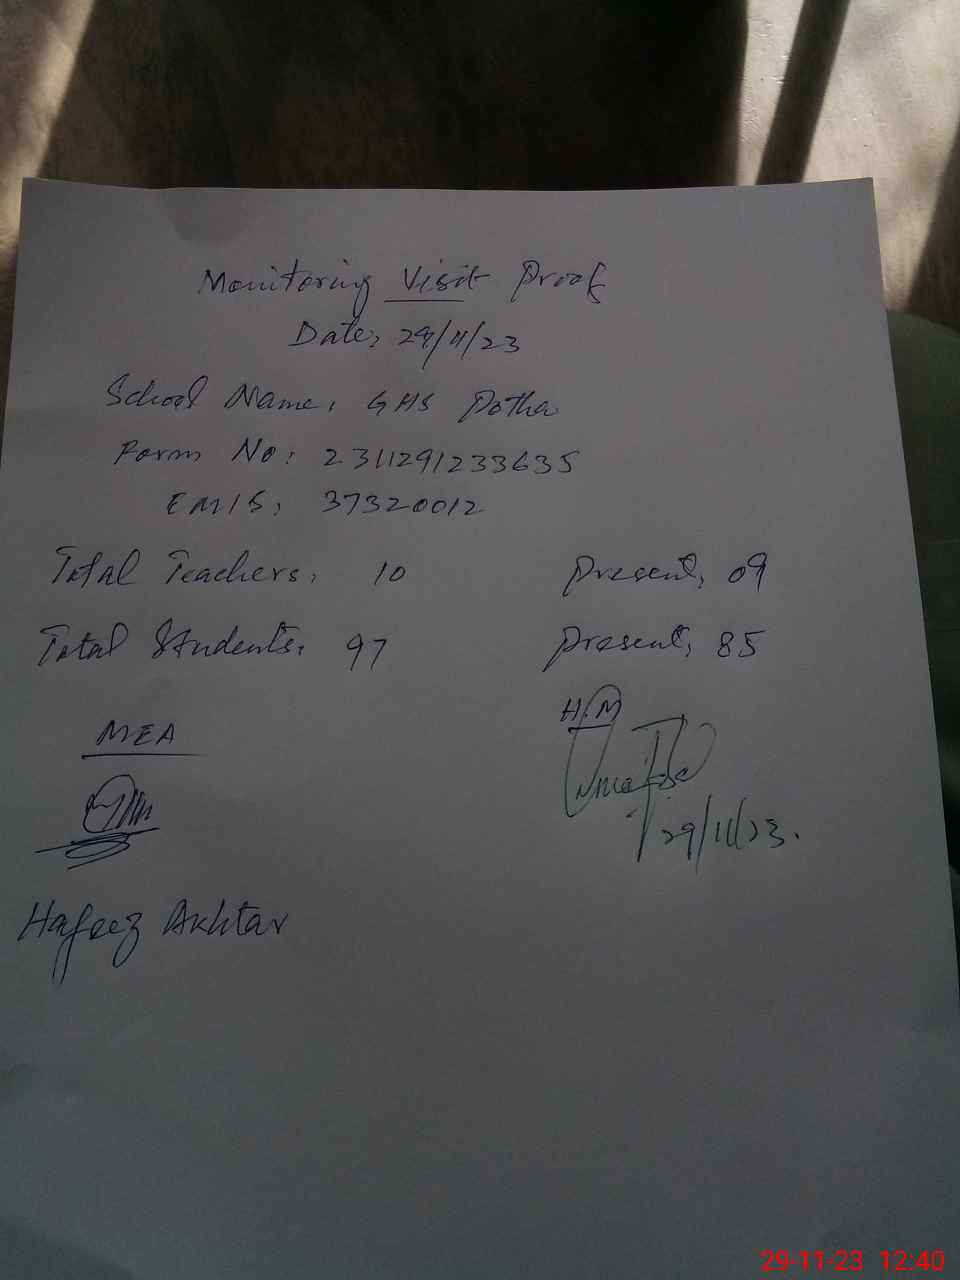 Monitoring Visit Proof
Date: 29/11/23
School Name: GHS Potha
Form No: 2311291233635
EMIS: 37320012
Total Teachers: 10 Present: 09
Total Students: 97 Present: 85
MEA H.M
29/11/23.
Hafeez Akhtar
29-11-23 12:40